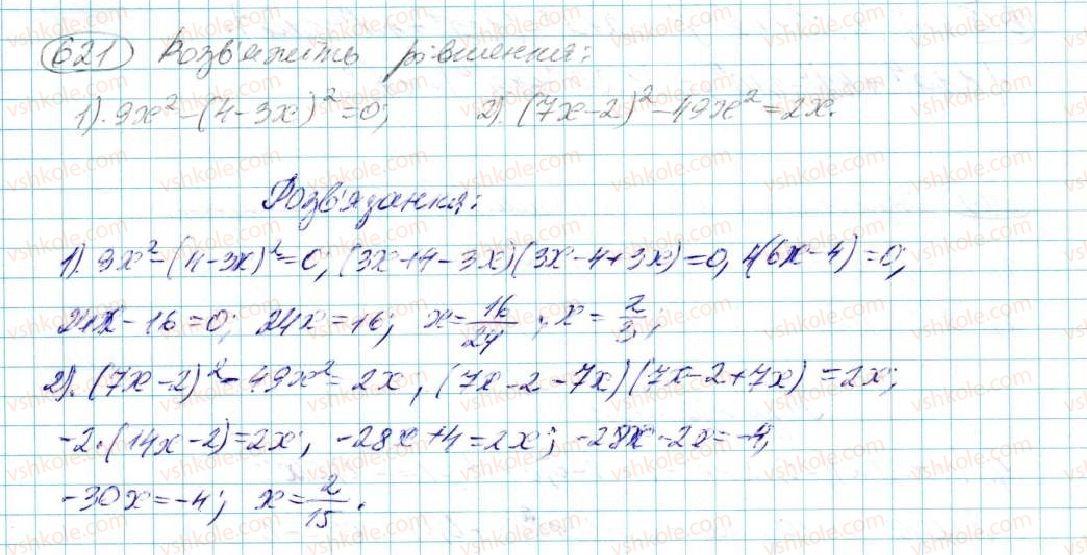 621 Розв'яжіть рівняння:
1). 9x² - (4 - 3x)² = 0; 2). (7x - 2)² - 49x² = 2x.
Розв'язання:
1). 9x² - (4 - 3x)² = 0; (3x + 4 - 3x)(3x - 4 + 3x) = 0, 4(6x - 4) = 0;
24x - 16 = 0; 24x = 16; x = 16/24; x = 2/3;
2). (7x - 2)² - 49x² = 2x, (7x - 2 - 7x)(7x - 2 + 7x) = 2x;
-2·(14x - 2) = 2x; -28x + 4 = 2x; -28x - 2x = -4,
-30x = -4; x = 2/15.